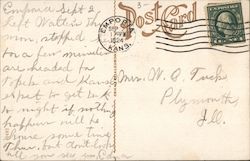 Post Card
EMPORIA
KANS.
Emporia Sept 2,
Left Watkins this
mon, stopped
for a few minutes
are headed for
Topeka and Kansas
expect to get back
to night if nothing
happens will be
home some time
Thur. but don't look
till you see us, Edna
Mrs. W. C. Tuck
Plymouth,
Ill.